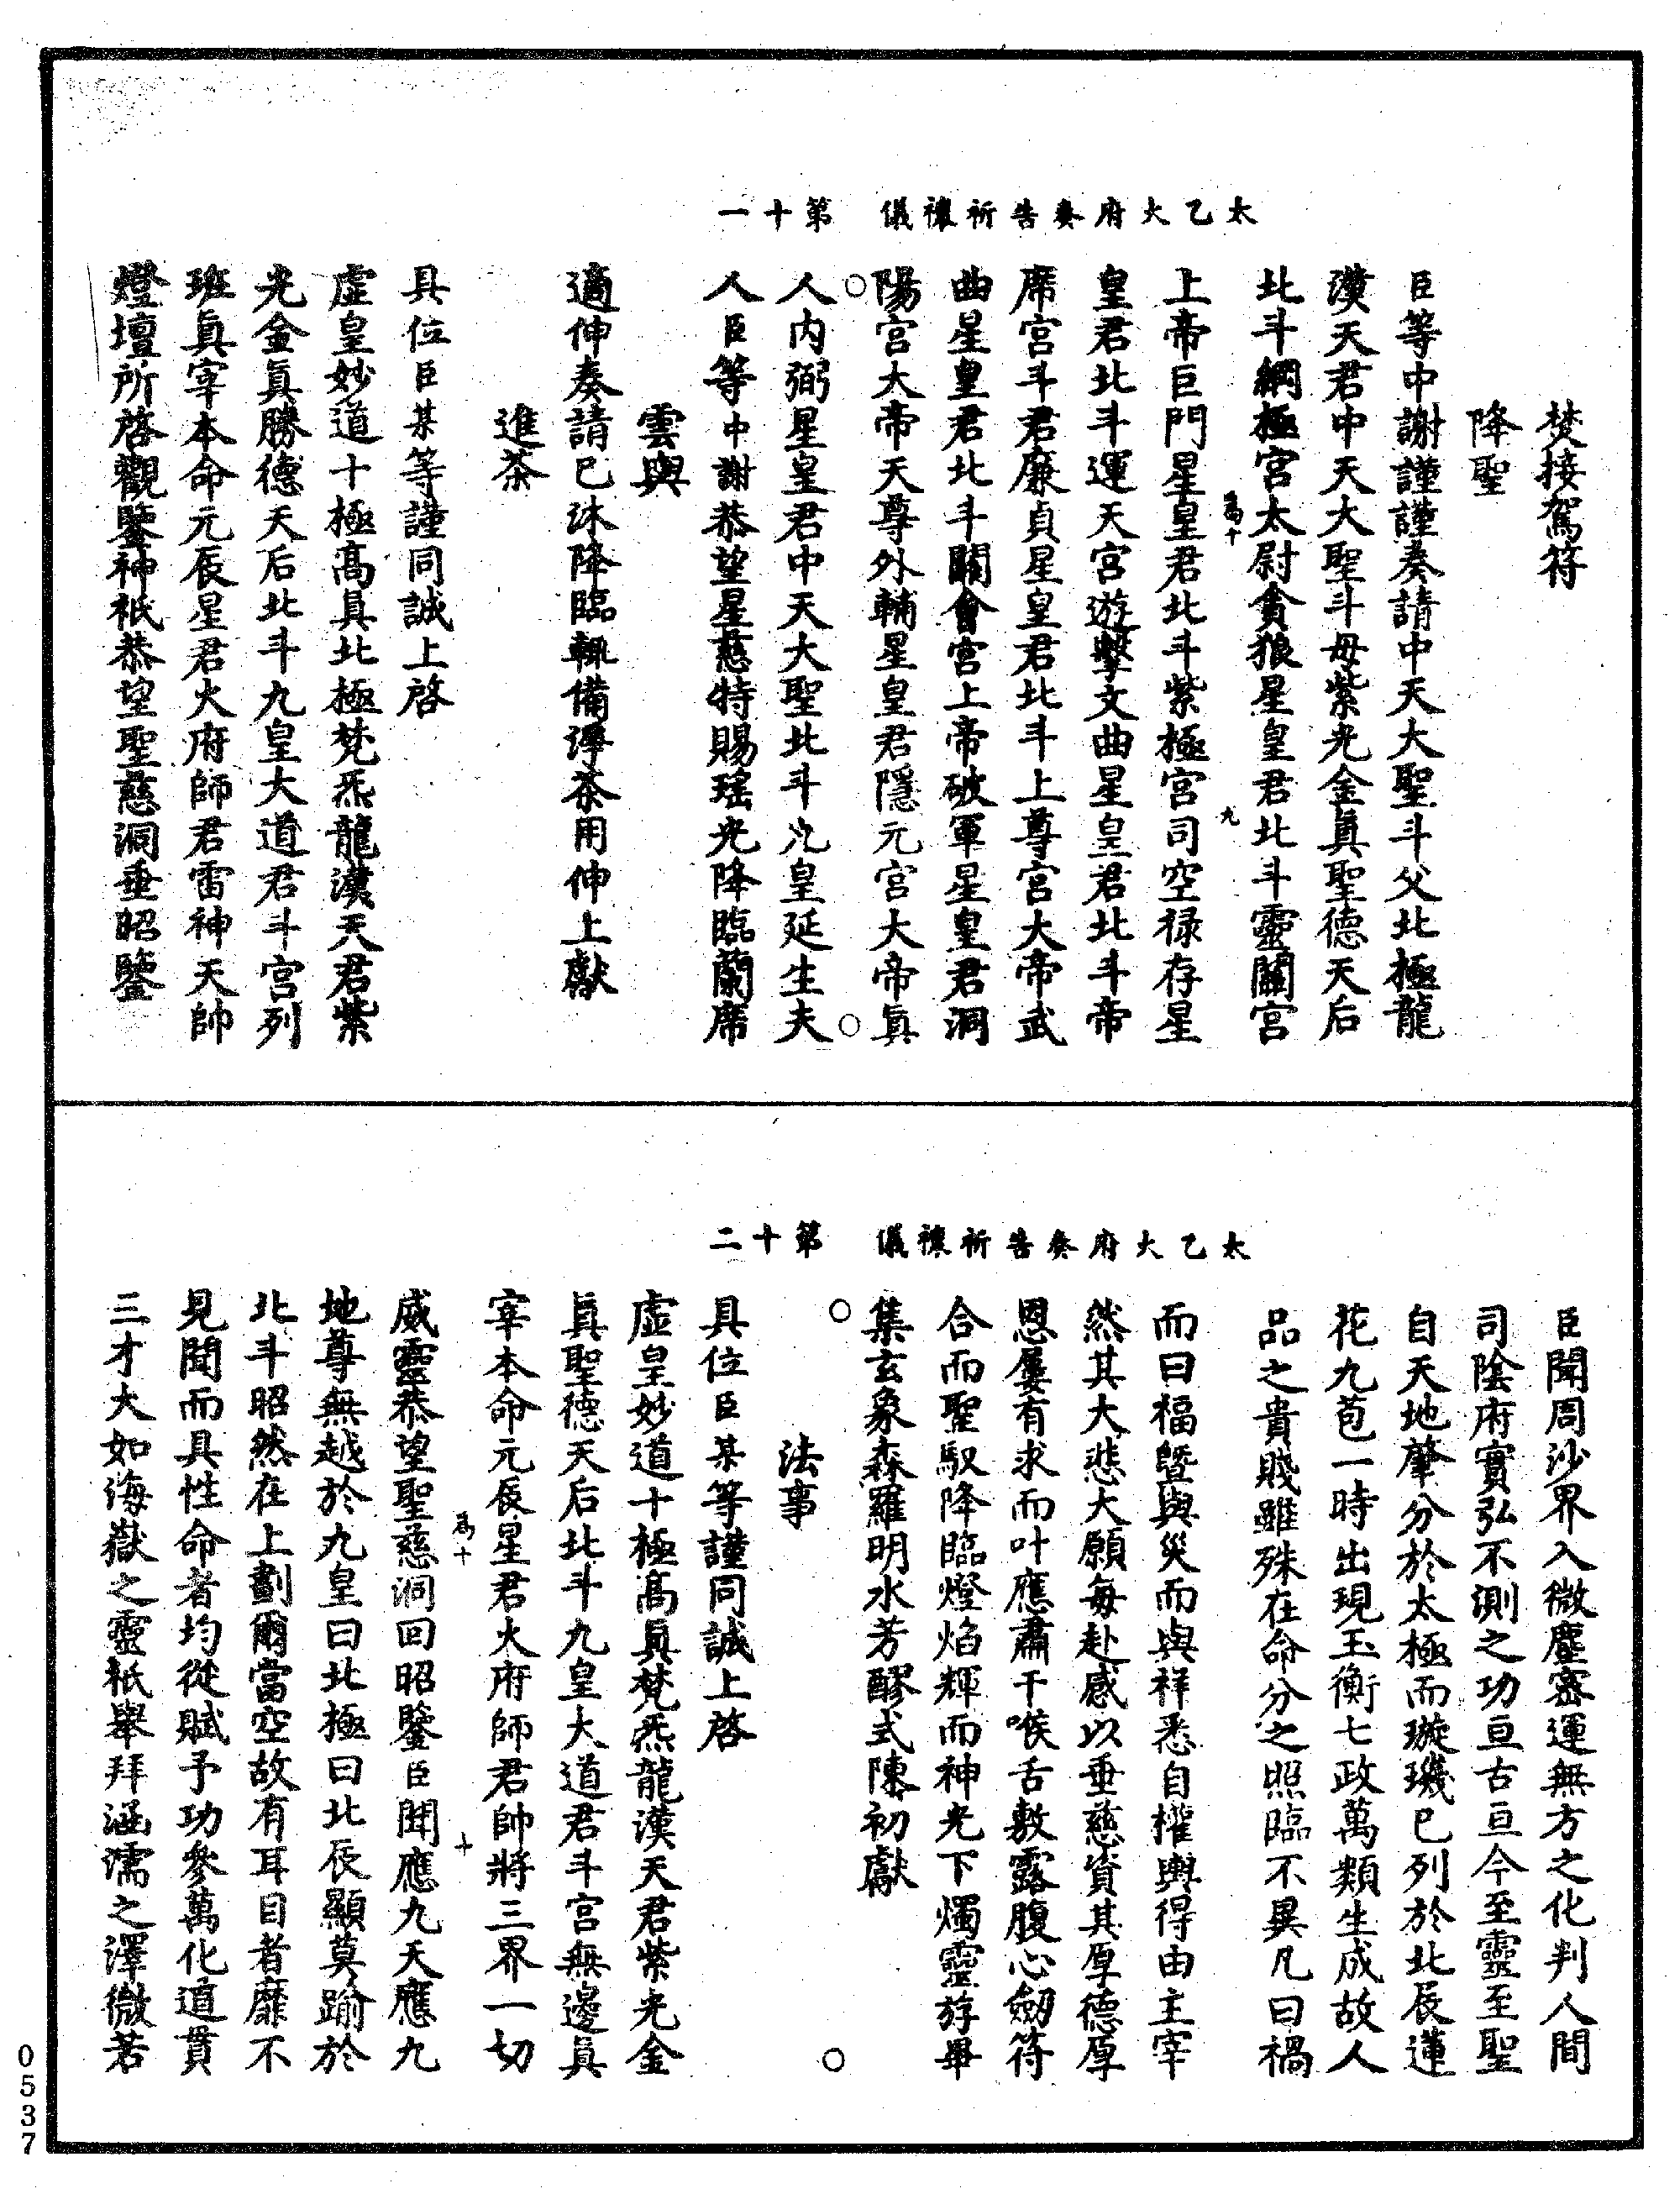 太乙火府奏告祈禳儀　第十一
焚接駕符
降聖
臣等中謝謹謹奏請中天大聖斗父北極龍
漢天君中天大聖斗母紫光金眞聖德天后
北斗綱極宮太尉貪狼星皇君北斗靈關宮
爲十
九
上帝巨門星皇君北斗紫極宮司空禄存星
皇君北斗運天宮遊擊文曲星皇君北斗帝
席宮斗君廉貞星皇君北斗上尊宮大帝武
曲星皇君北斗關會宮上帝破軍星皇君洞
陽宮大帝天尊外輔星皇君隱元宮大帝眞
人内弼星皇君中天大聖北斗九皇延生夫
人臣等中謝恭望星慈特賜瑤光降臨蘭席
雲輿
適伸奏請已沐降臨輒備淨茶用伸上獻
進茶
具位臣某等謹同誠上啓
虛皇妙道十極高眞北極梵炁龍漢天君紫
光金眞勝德天后北斗九皇大道君斗宮列
班眞宰本命元辰星君火府師君雷神天帥
燈壇所啓觀鑒神祇恭望聖慈洞垂昭鑒
太乙火府奏告祈禳儀　第十二
臣聞周沙界入微塵密運無方之化判人間
司陰府實弘不測之功亘古亘今至靈至聖
自天地肇分於太極而璇璣已列於北辰蓮
花九苞一時出現玉衡七政萬類生成故人
品之貴賤雖殊在命分之照臨不異凡曰禍
而曰福曁與災而與祥悉自權輿得由主宰
然其大悲大願每赴感以垂慈資其厚德厚
恩屢有求而叶應肅干喉舌敷露腹心劒符
合而聖馭降臨燈焰輝而神光下燭靈斿畢
集玄象森羅明水芳醪式陳初獻
法事
具位臣某等謹同誠上啓
虛皇妙道十極高眞梵炁龍漢天君紫光金
眞聖德天后北斗九皇大道君斗宮無邊眞
宰本命元辰星君火府師君帥將三界一切
爲十
十
威靈恭望聖慈洞回昭鑒臣聞應九天應九
地尊無越於九皇曰北極曰北辰顯莫踰於
北斗昭然在上劃爾當空故有耳目者靡不
見聞而具性命者均從賦予功參萬化道貫
三才大如海嶽之靈祇舉拜涵濡之澤微若
0537